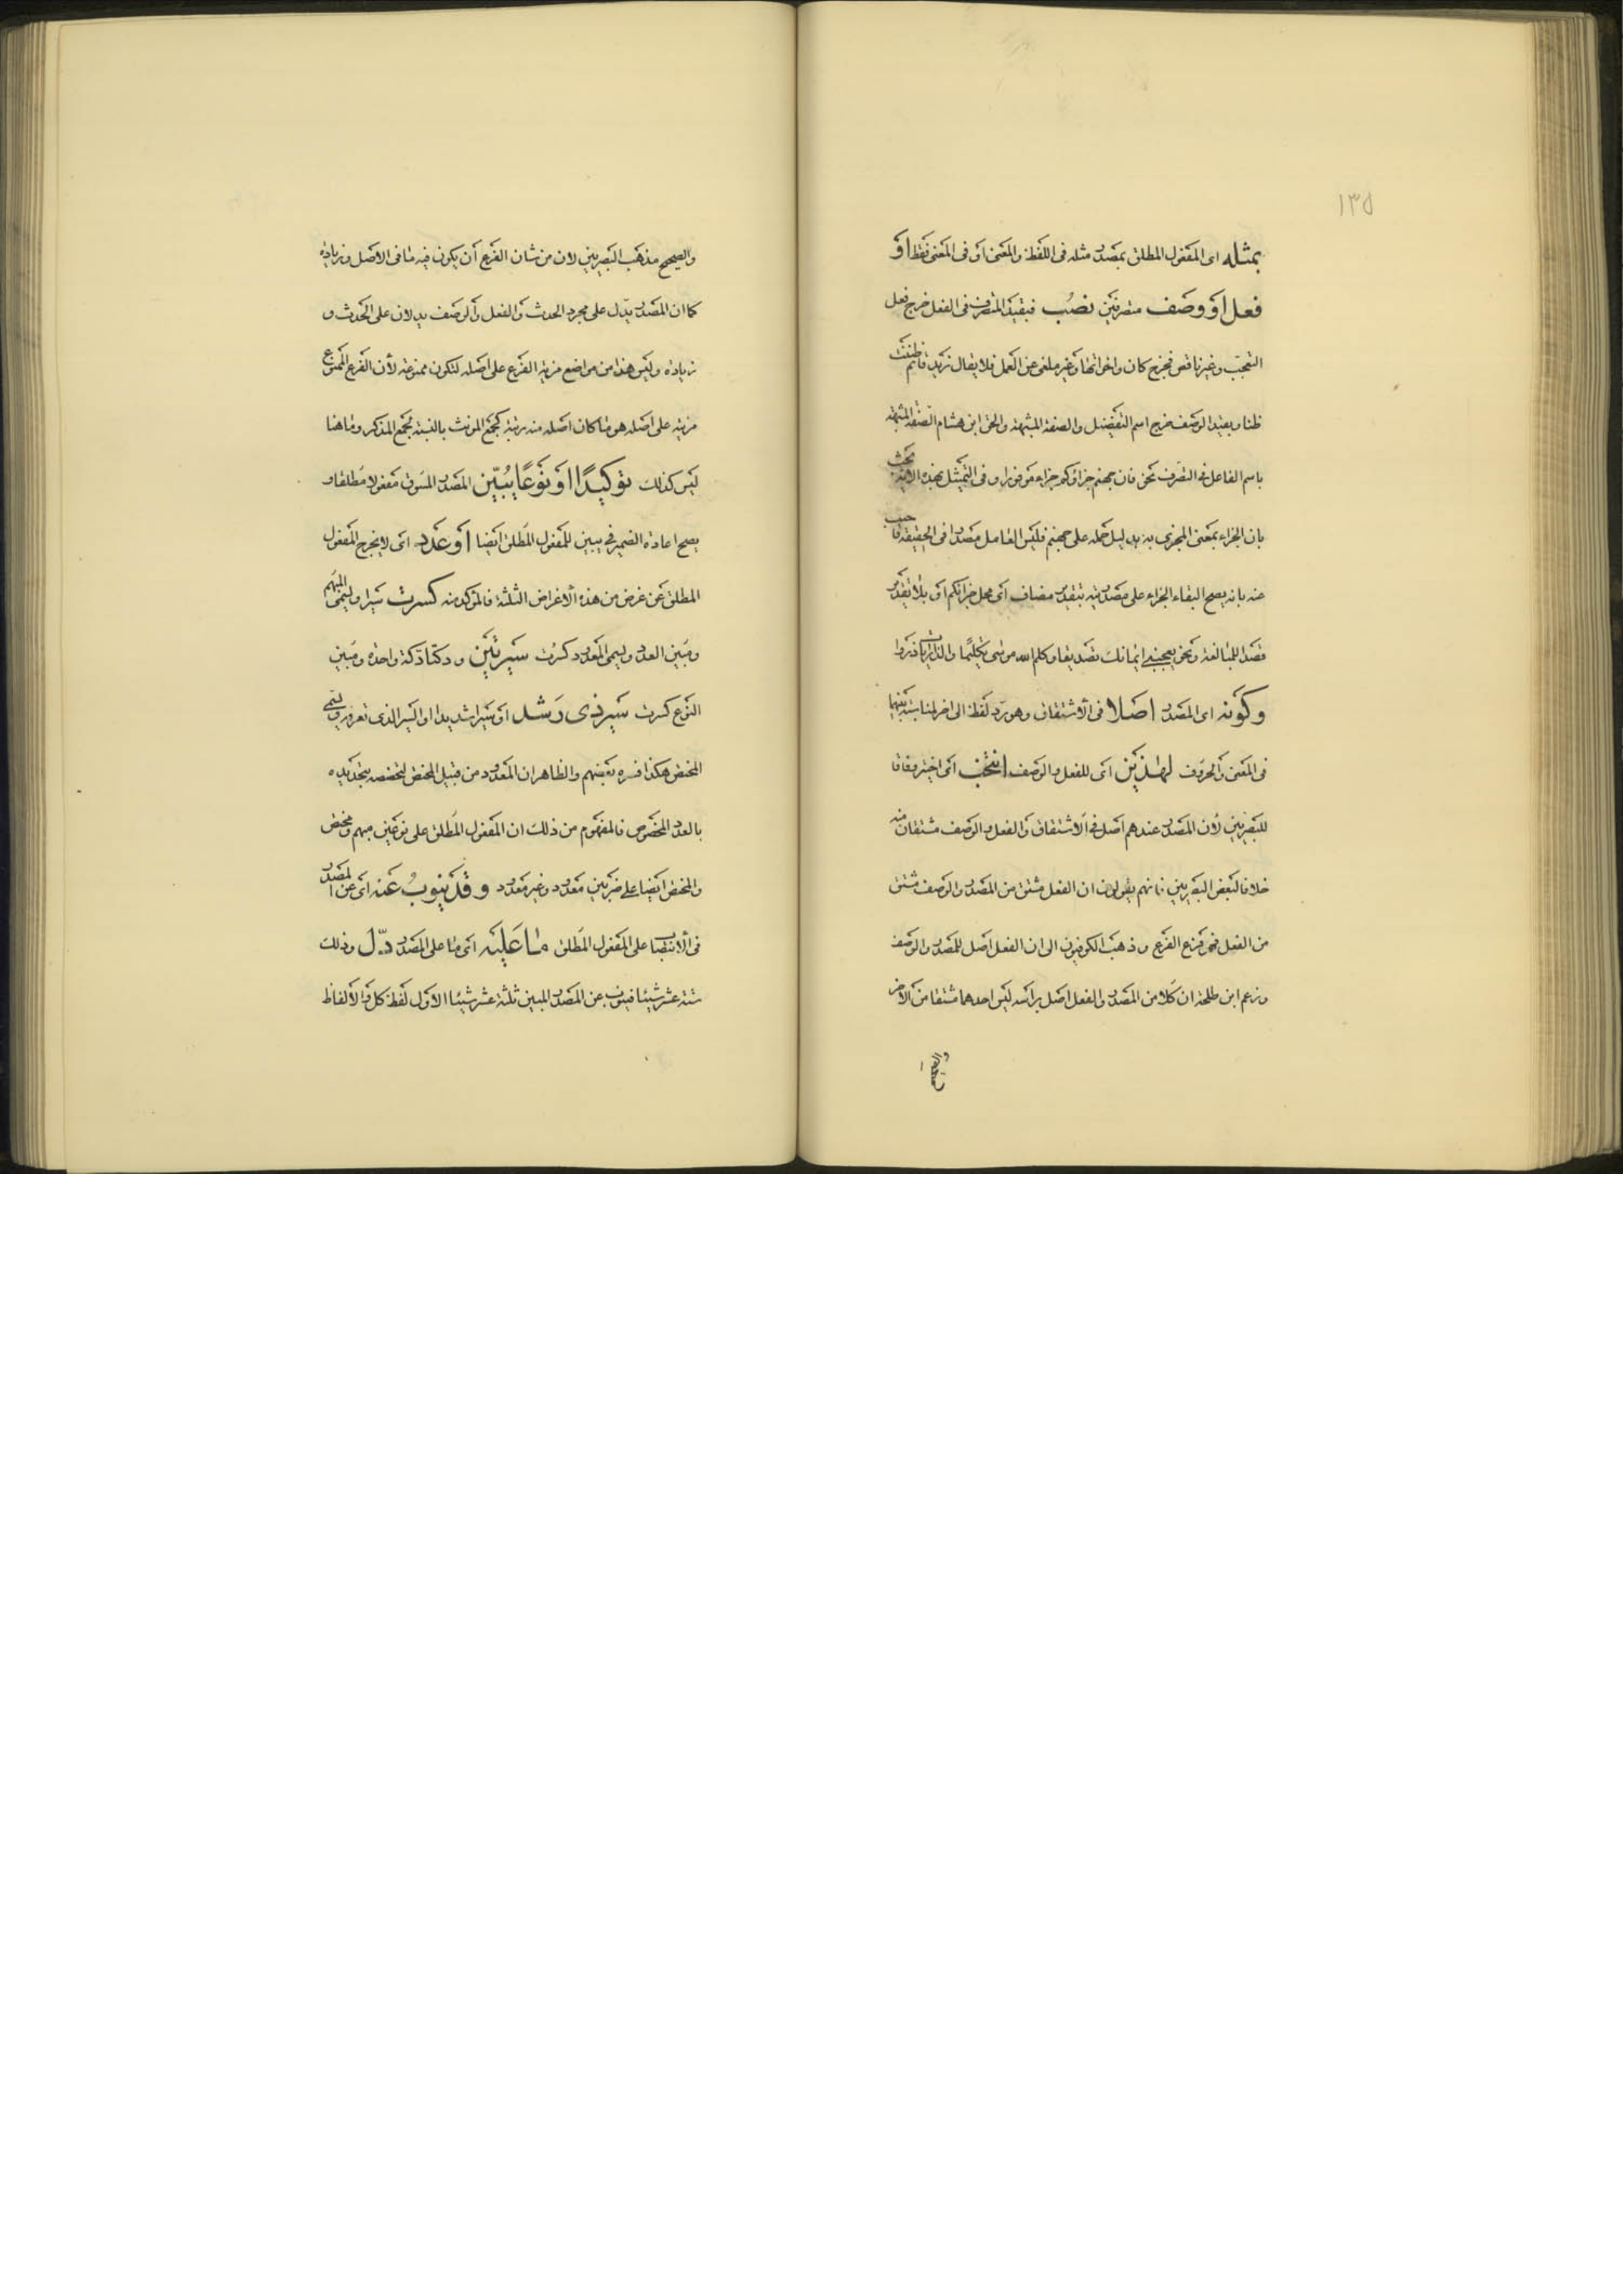 ١٣٥
بمثله اى المفعول المطلق بمصدر مثله فى اللفظ والمعنى او فى المعنى فقط او
فعل او وصف متصرفين نصب فبقيد المتصرف فى الفعل خرج فعل
التعجب وغير ناقص فخرج كان واخواتها وغير ملغى عن العمل فلا يقال زيد قائم ظننت
ظنا وبقيد الوصف خرج اسم التفضيل والصفة المشبهة والحق ابن هشام الصفة المشبهة
باسم الفاعل فى التصرف نحو فان جهنم جزاؤكم جزاء موفورا وفى التمثيل بهذه الاية بحث
بان الجزاء بمعنى المجزى به بدليل حمله على جهنم فليس العامل مصدرا فى الحقيقة فاجيب
عنه بانه يصح ابقاء الجزاء على مصدريته بتقدير مضاف اى محل جزائكم او بلا تقدير
قصدا للمبالغة ونحو يعجبنى ايمانك تصديقا وكلم الله موسى تكليما والذاريات ذروا
وكونه اى المصدر اصلا فى الاشتقاق وهو رد لفظ الى اخر لمناسبة بينهما
فى المعنى والحروف لهذين اى للفعل والوصف انتخب اى اختير وفاقا
للبصريين لأن المصدر عندهم اصل فى الاشتقاق والفعل والوصف مشتقان منه
خلافا لبعض البصريين فانهم يقولون ان الفعل مشتق من المصدر والوصف مشتق
من الفعل فهو فرع الفرع وذهب الكوفيون الى ان الفعل اصل للمصدر والوصف
وزعم ابن طلحة ان كلا من المصدر والفعل اصل براسه ليس احدهما مشتقا من الآخر
والصحيح
والصحيح مذهب البصريين لان من شان الفرع أن يكون فيه ما فى الاصل وزيادة
كما ان المصدر يدل على مجرد الحدث والفعل والوصف يدلان على الحدث و
زيادة وليس هذا من مواضع مزية الفرع على اصله لتكون ممنوعة لأن الفرع الممنوع
مزيته على اصله هو ما كان اصله منه رتبة كجمع المونث بالنسبة لجمع المذكر وما هنا
ليس كذلك توكيدا او نوعا يبين المصدر المسوق مفعولا مطلقا و
يصح اعادة الضمير فى يبين للمفعول المطلق ايضا او عدد اى لا يخرج المفعول
المطلق عن غرض من هذه الاغراض الثلثة فالمؤكد منه كسرت سيرا ويسمى المبهم
ومبين العدد ويسمى المعدود كسرت سيرتين ودكتا دكة واحدة ومبين
النوع كسرت سير ذى رشد او سيرا شديدا او السير الذى تعرفه ويسمى
المختص هكذا فسره بعضهم والظاهر ان المعدود من قبيل المختص لتخصصه بتحديده
بالعدد المخصوص فالمفهوم من ذلك ان المفعول المطلق على نوعين مبهم ومختص
والمختص ايضا على ضربين معدود وغير معدود وقد ينوب عنه اى عن المصدر
فى الانتصاب على المفعول المطلق ما عليه اى ما على المصدر دل وذلك
ستة عشر شيئا فينوب عن المصدر المبين ثلثة عشر شيئا الاول لفظ كل والالفاظ